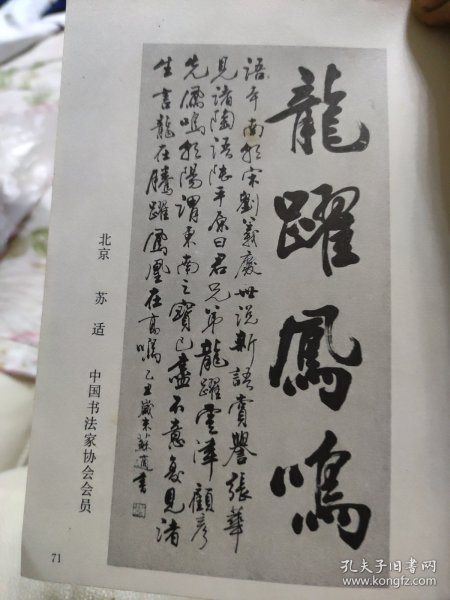 龍躍鳳鳴
語本南朝宋劉義慶世説新語賞譽張華
見褚陶語陸平原曰君兄弟龍躍雲津顧彥
先鳳鳴朝陽謂東南之寶已盡不意復見褚
生言龍在騰躍鳳凰在高鳴乙丑歲末蘇適書
北京 苏适 中国书法家协会会员
71
孔夫子旧书网
www.kongfz.com